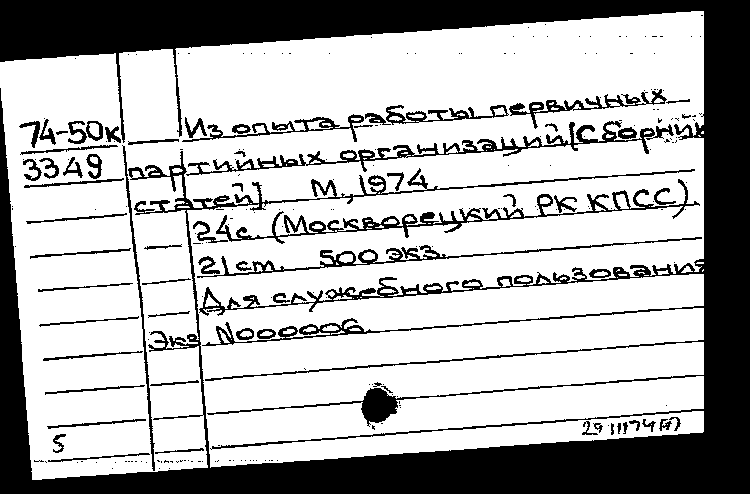 74-50к Из опыта работы первичных
3349 партийных организаций. [Сборник
статей]. М., 1974.
24с. (Москворецкий РК КПСС).
21 ст. 500 экз.
Для служебного пользования
Экз. N000006.
5